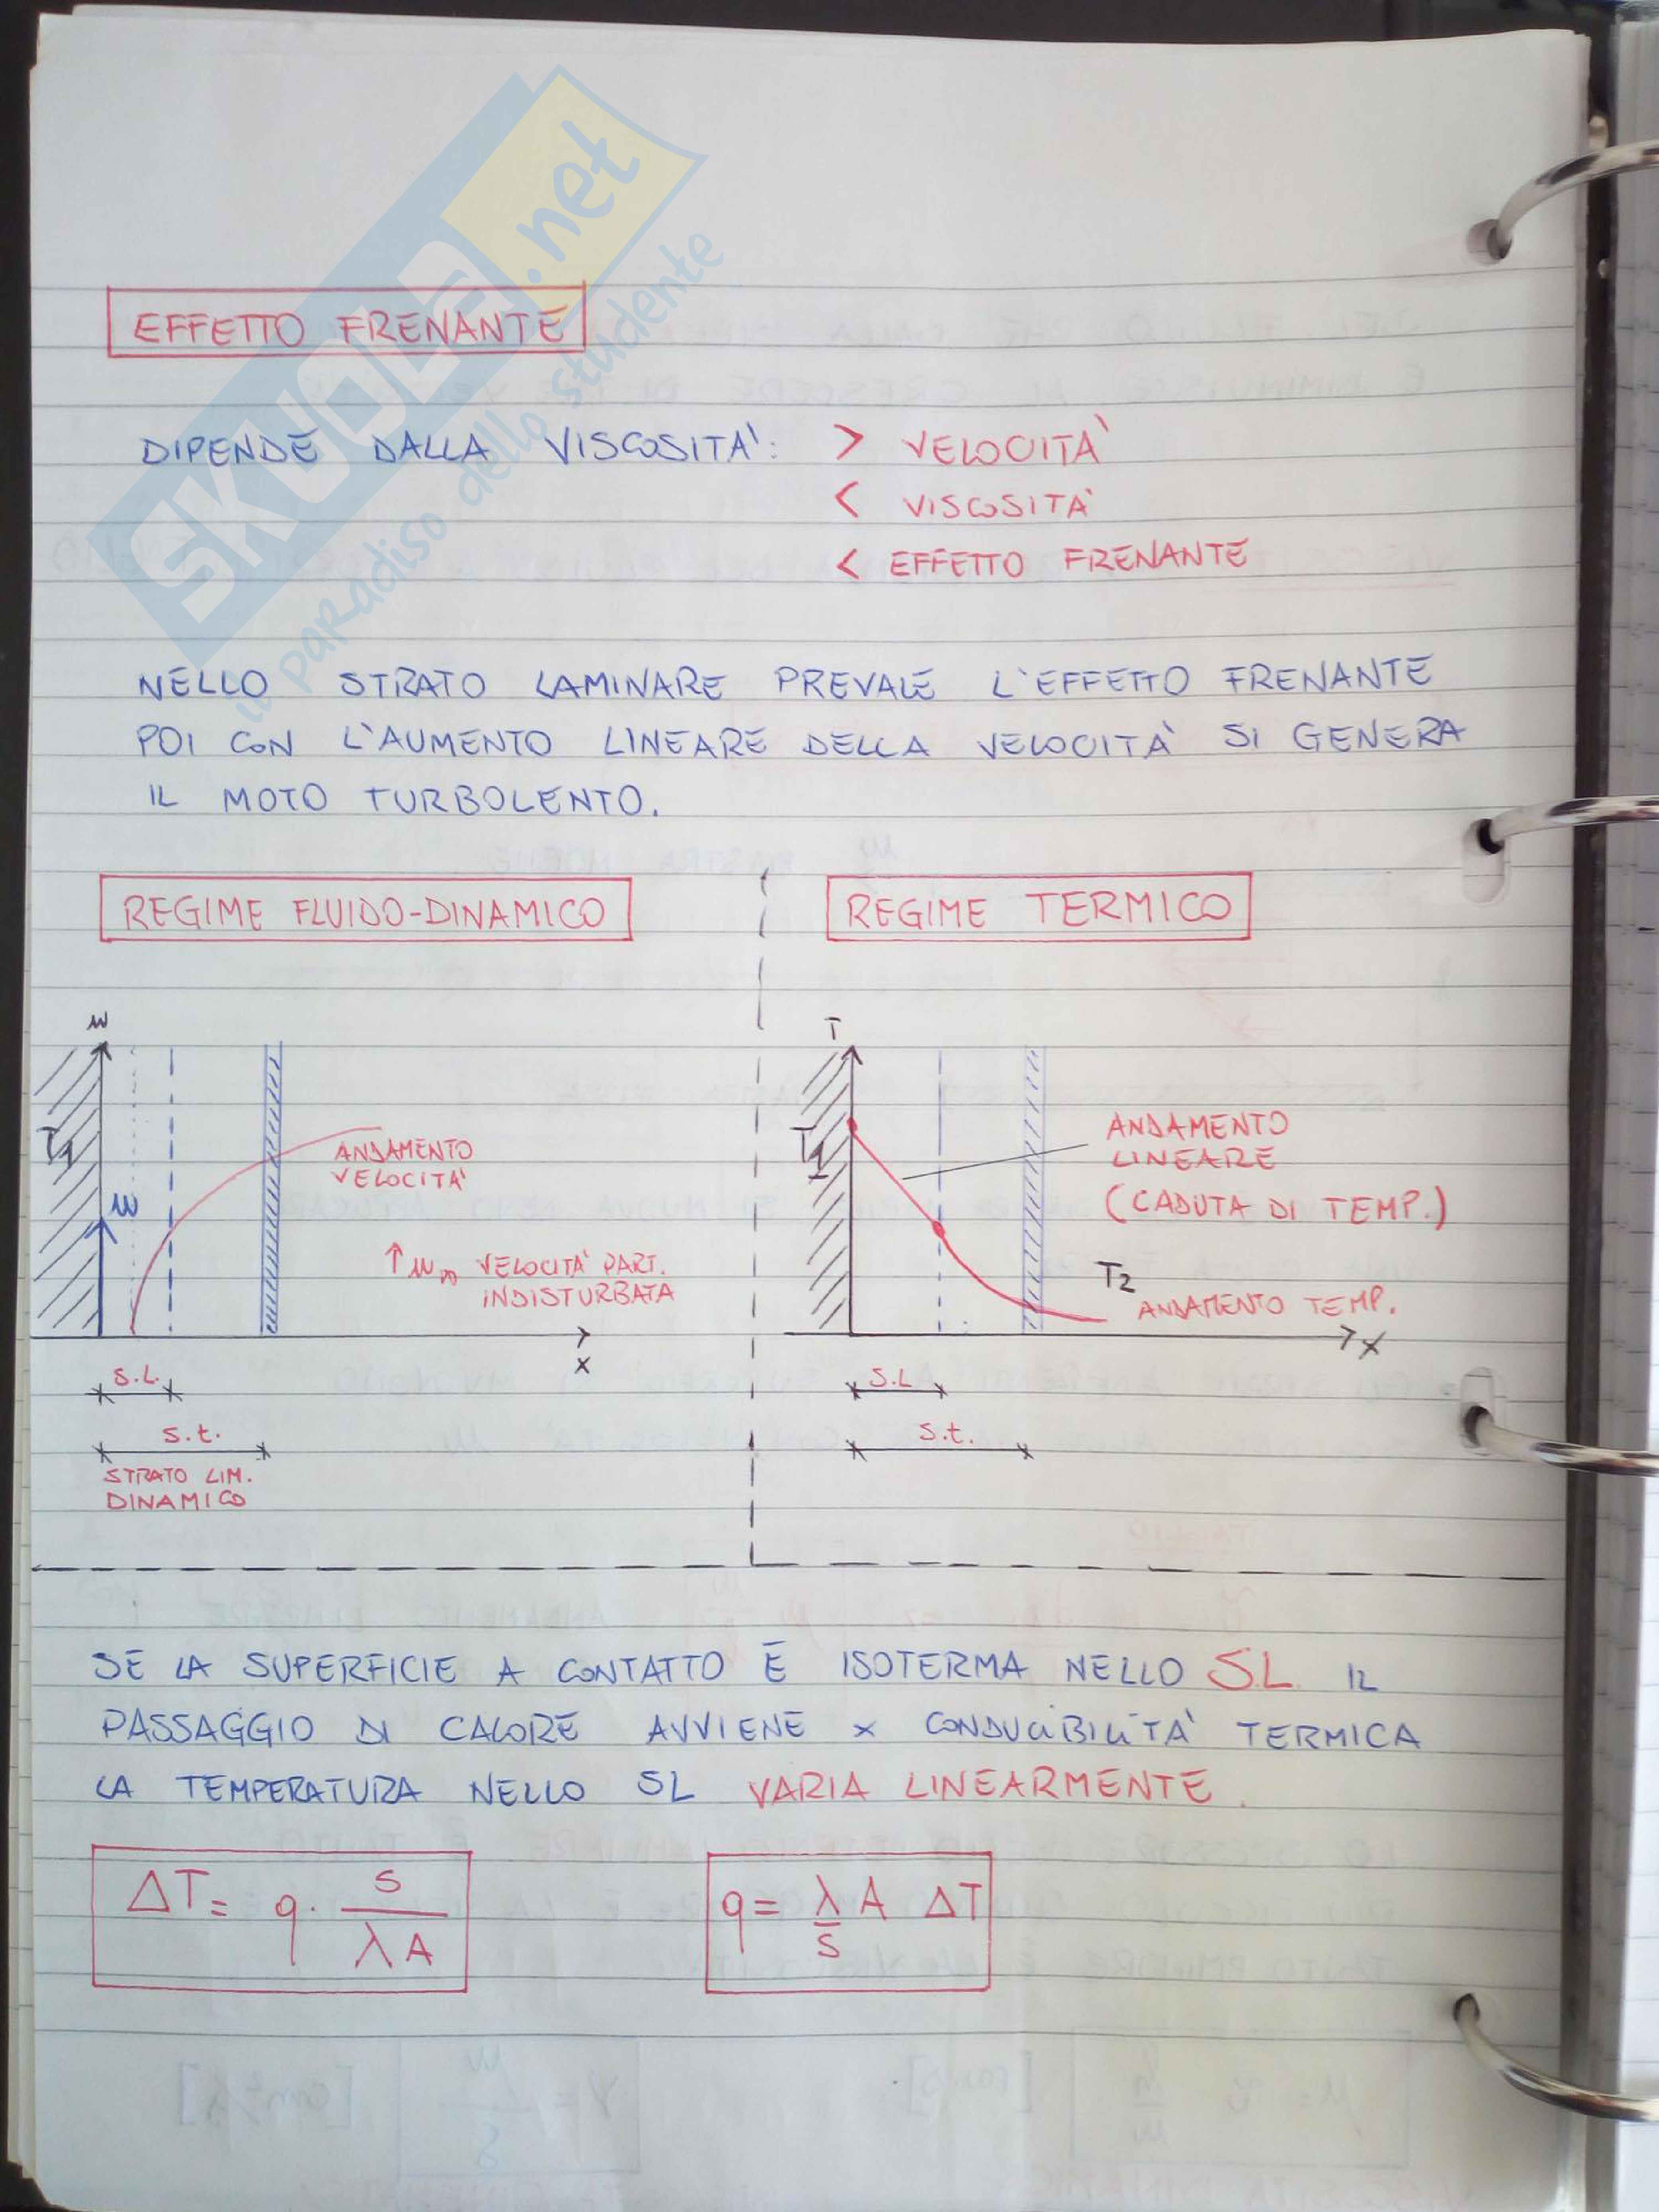 SKUOLA.net
il paradiso dello studente
EFFETTO FRENANTE
DIPENDE DALLA VISCOSITA': > VELOCITÀ
< VISCOSITÀ
< EFFETTO FRENANTE
NELLO STRATO LAMINARE PREVALE L'EFFETTO FRENANTE
POI CON L'AUMENTO LINEARE DELLA VELOCITÀ SI GENERA
IL MOTO TURBOLENTO.
REGIME FLUIDO-DINAMICO
w
T1
w
ANDAMENTO
VELOCITA'
↑ w∞ VELOCITA' PART.
INDISTURBATA
x
S.L.
S.t.
STRATO LIM.
DINAMICO
REGIME TERMICO
T
T1
ANDAMENTO
LINEARE
(CADUTA DI TEMP.)
T2
ANDAMENTO TEMP.
x
S.L
S.t.
SE LA SUPERFICIE A CONTATTO È ISOTERMA NELLO S.L. IL
PASSAGGIO DI CALORE AVVIENE x CONDUCIBILITA' TERMICA
LA TEMPERATURA NELLO SL VARIA LINEARMENTE.
ΔT = q · s / λA
q = λ/s A ΔT